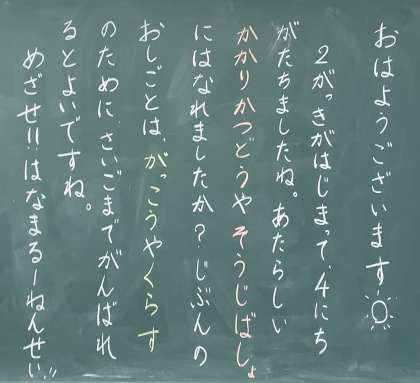 おはようございます
2がっきがはじまって、4にち
がたちましたね。あたらしい
かかりかつどうや そうじばしょ
にはなれましたか？じぶんの
おしごとは、がっこうやくらす
のために、さいごまでがんばれ
るとよいですね。
めざせ!!はなまるーねんせい!!